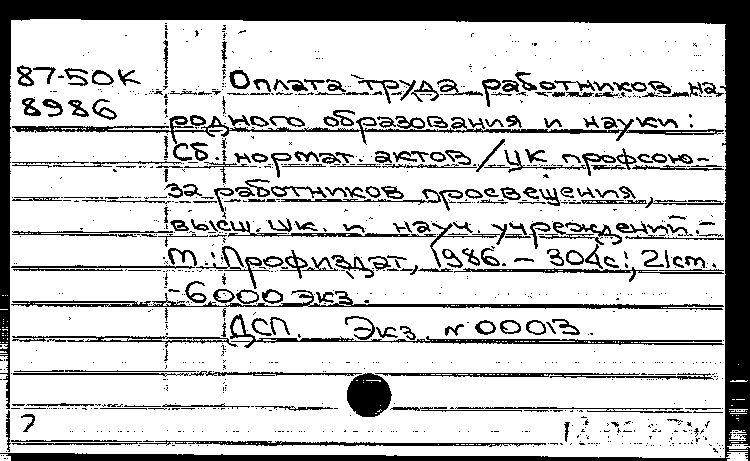 87-50К Оплата труда работников на-
8986 родного образования и науки:
Сб. нормат. актов / ЦК профсою-
за работников просвещения,
высш. шк. и науч. учреждений. -
М.: Профиздат, 1986. - 304с.; 21см.
- 6000 экз.
ДСП. Экз. № 00013.